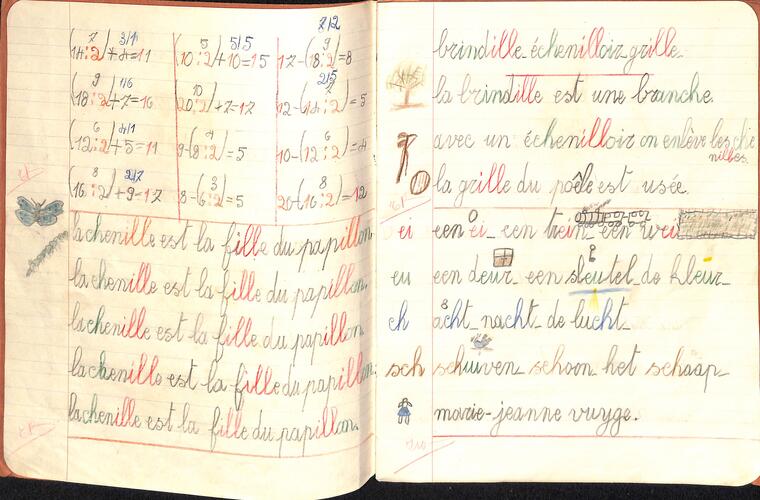 7 3/11
(14:2)+4=11
9 7/6
(18:2)+7=16
6 4/1
(12:2)+5=11
8 2/7
(16:2)+9=17
5 5/5
(10:2)+10=15
10
(20:2)+7=17
4
9-(8:2)=5
3
8-(6:2)=5
7/2
9
17-(18:2)=8
2/5
7
12-(14:2)=5
6
10-(12:2)=4
8
20-(16:2)=12
la chenille est la fille du papillon.
la chenille est la fille du papillon.
la chenille est la fille du papillon.
la chenille est la fille du papillon.
la chenille est la fille du papillon.
brindille_échenilloir_grille_
la brindille est une branche.
avec un échenilloir on enlève les che
nilles.
la grille du poêle est usée.
ei een ei_ een trein_ een wei
eu een deur_ een sleutel_de kleur_
ch acht_nacht_de lucht_
sch schuiven_schoon_het schaap_
marie-jeanne vuyge.